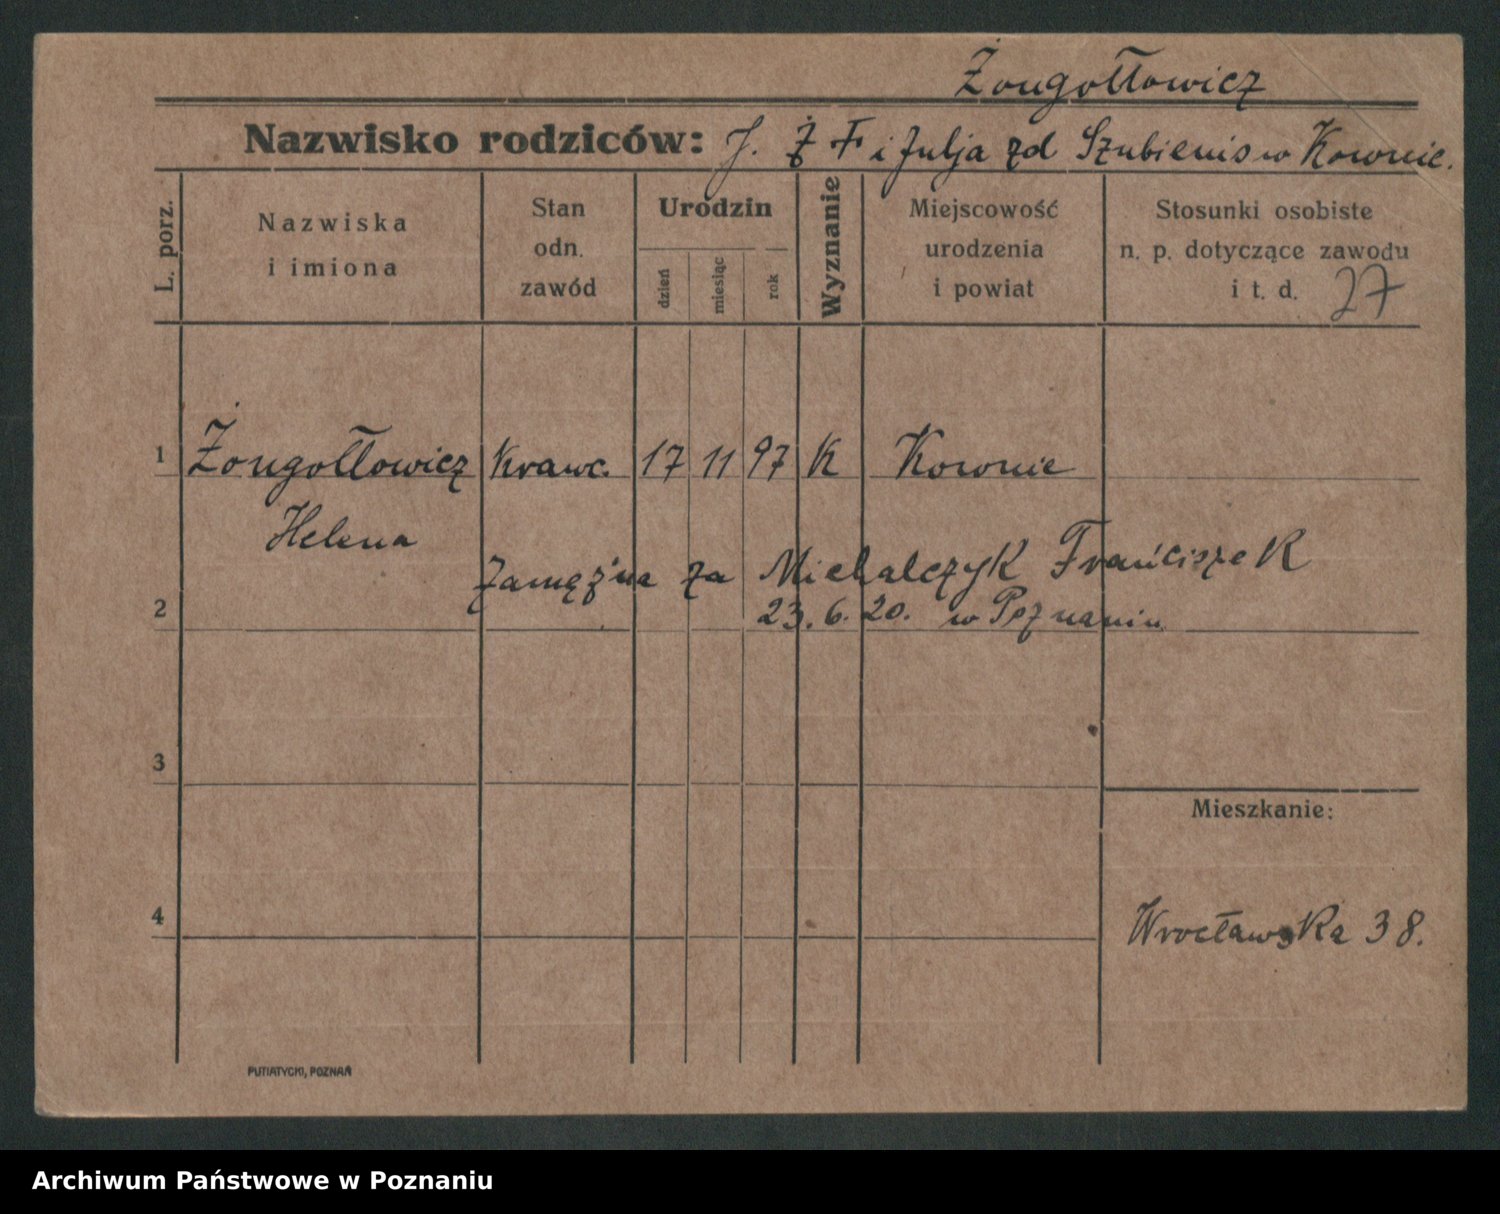 Żongołłowicz
Nazwisko rodziców: J. Ż F i Julja zd Szubienis w Kownie.
L. porz.
Nazwiska
i imiona
Stan
odn.
zawód
Urodzin
dzień
miesiąc
rok
Wyznanie
Miejscowość
urodzenia
i powiat
Stosunki osobiste
n. p. dotyczące zawodu
i t. d. 27
1 Żongołłowicz Krawc. 17 11 97 K Kownie
Helena
Zamężna za Michalczyk Franciszek
2 23.6.20. w Poznaniu
3
Mieszkanie:
4 Wrocławska 38.
PUTIATYCKI, POZNAŃ
Archiwum Państwowe w Poznaniu